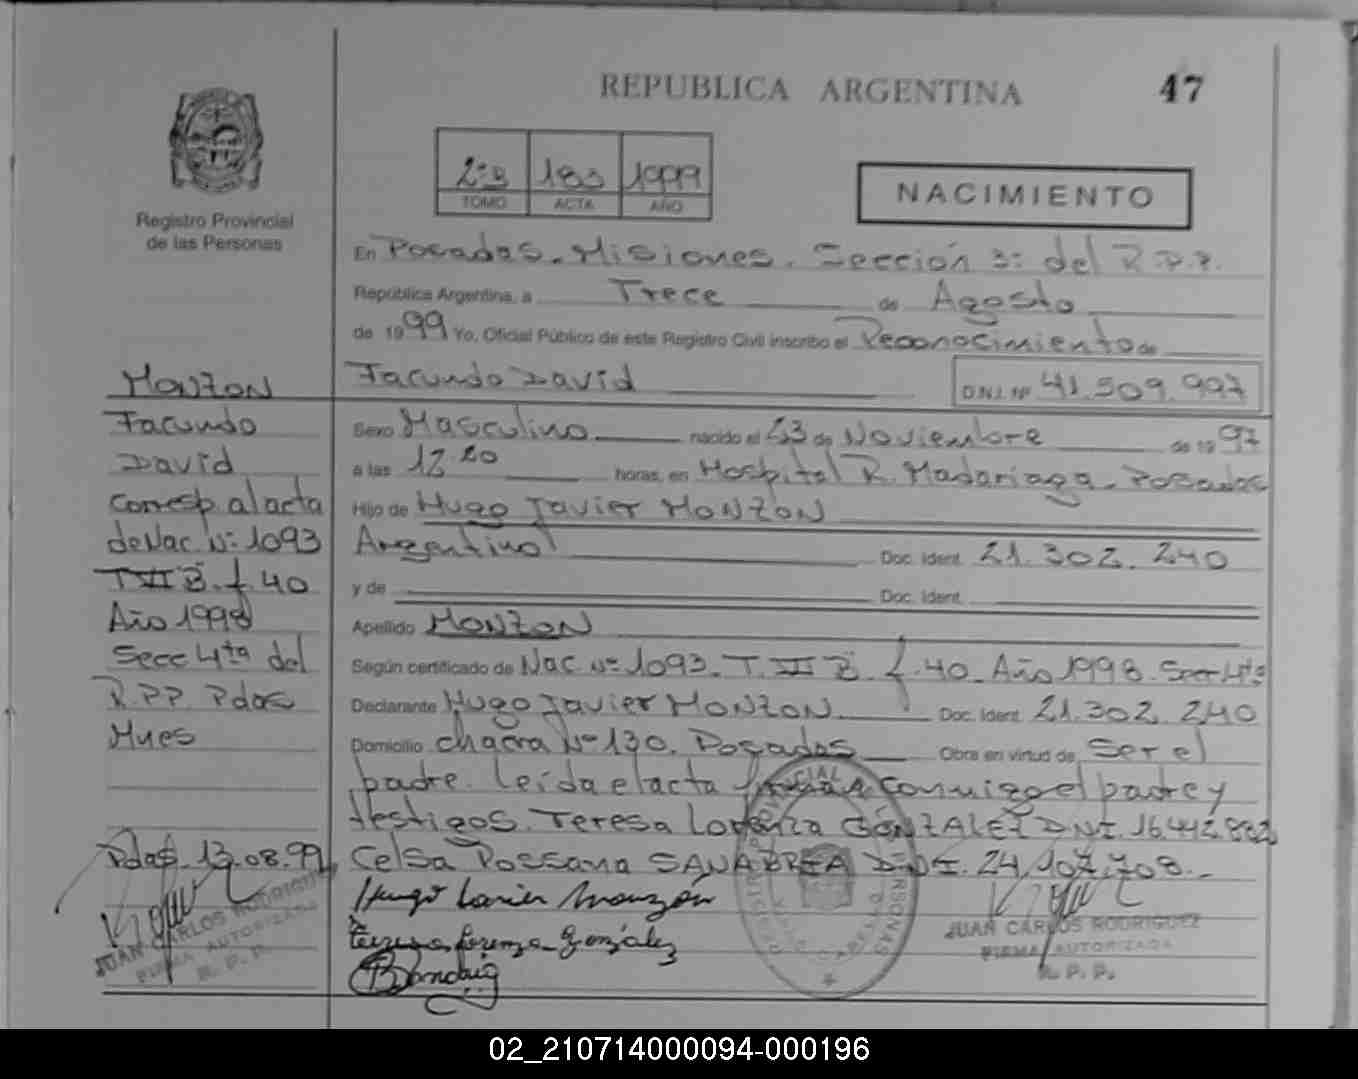 REPUBLICA ARGENTINA
47
2º B 183 1999
TOMO ACTA AÑO
NACIMIENTO
Registro Provincial
de las Personas
En Posadas. Misiones. Sección 3ª del R.P.P.
República Argentina, a Trece de Agosto
de 1999 Yo, Oficial Público de este Registro Civil inscribo el Reconocimiento de
Facundo David D.N.I. Nº 41.509.997
Sexo Masculino nacido el 23 de Noviembre de 1997
a las 12 20 horas, en Hospital R. Madariaga. Posadas
Hijo de Hugo Javier MONZON
Argentino Doc. Ident. 21.302.240
y de Doc. Ident.
Apellido MONZON
Según certificado de Nac Nº 1093. T. III B f. 40. Año 1998. Secc 4ta
Declarante Hugo Javier MONZON Doc. Ident. 21.302.240
Domicilio chacra Nº 130. Posadas Obra en virtud de Ser el
padre. leída el acta firman conmigo el padre y
testigos. Teresa Lorenza GONZALEZ DNI. 16.442.882
Celsa Rossana SANABRIA DNI. 24.107.708.-
Hugo Javier Monzón
Teresa Lorenza González
JUAN CARLOS RODRIGUEZ
FIRMA AUTORIZADA
R. P. P.
MONZON
Facundo
David
corresp. al acta
de Nac. Nº 1093
T III B. f. 40
Año 1998
Secc 4ta del
R.P.P. Pdas
Mnes
Pdas. 13.08.99
JUAN CARLOS RODRIGUEZ
FIRMA AUTORIZADA
R. P. P.
02_210714000094-000196